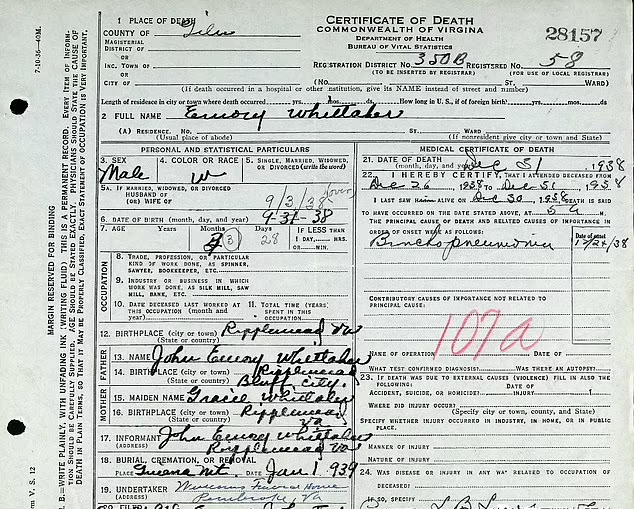 CERTIFICATE OF DEATH
COMMONWEALTH OF VIRGINIA
DEPARTMENT OF HEALTH
BUREAU OF VITAL STATISTICS
28157
1 PLACE OF DEATH
COUNTY OF Giles
MAGISTERIAL DISTRICT OF
OR
INC. TOWN OF
OR
CITY OF
REGISTRATION DISTRICT NO. 350B REGISTERED NO. 58
(TO BE INSERTED BY REGISTRAR) (FOR USE OF LOCAL REGISTRAR)
(No. ST. WARD)
(If death occurred in a hospital or other institution, give its NAME instead of street and number)
Length of residence in city or town where death occurred yrs. mos. ds. How long in U. S., if of foreign birth? yrs. mos. ds.
2 FULL NAME Emory Whittaker
(A) RESIDENCE. No. St. Ward
(Usual place of abode) (If nonresident give city or town and State)
PERSONAL AND STATISTICAL PARTICULARS
3. SEX
Male
4. COLOR OR RACE
W
5. SINGLE, MARRIED, WIDOWED, OR DIVORCED (write the word)
5A. IF MARRIED, WIDOWED, OR DIVORCED
HUSBAND OF
(OR) WIFE OF
9/3/38
6. DATE OF BIRTH (month, day, and year) 9-31-38
7. AGE Years Months Days IF LESS THAN
3 28 1 DAY, HRS.
OR MIN.
OCCUPATION
8. TRADE, PROFESSION, OR PARTICULAR KIND OF WORK DONE, AS SPINNER, SAWYER, BOOKKEEPER, ETC.
9. INDUSTRY OR BUSINESS IN WHICH WORK WAS DONE, AS SILK MILL, SAW MILL, BANK, ETC.
10. DATE DECEASED LAST WORKED AT THIS OCCUPATION (month and year)
11. TOTAL TIME (YEARS) SPENT IN THIS OCCUPATION.
12. BIRTHPLACE (city or town) Ripplemead Va
(State or country)
FATHER
13. NAME John Emory Whittaker
14. BIRTHPLACE (city or town) Ripplemead
(State or country) Bluff City.
MOTHER
15. MAIDEN NAME Whittaker
16. BIRTHPLACE (city or town) Ripplemead
(State or country) Va
17. INFORMANT John Emory Whittaker
(ADDRESS) Ripplemead Va
18. BURIAL, CREMATION, OR REMOVAL
PLACE Mt. DATE Jan 1 1939
19. UNDERTAKER Funeral Home
(ADDRESS) Pembroke, Va
20. FILED
MEDICAL CERTIFICATE OF DEATH
21. DATE OF DEATH
(month, day, and year) Dec 31 1938
22. I HEREBY CERTIFY, THAT I ATTENDED DECEASED FROM
Dec 26 1938 TO Dec 31 1938
I LAST SAW H ALIVE ON Dec 30 1938 DEATH IS SAID
TO HAVE OCCURRED ON THE DATE STATED ABOVE, AT 5 a M.
THE PRINCIPAL CAUSE OF DEATH AND RELATED CAUSES OF IMPORTANCE IN ORDER OF ONSET WERE AS FOLLOWS:
Date of onset
Bronchopneumonia 12/26/38
CONTRIBUTORY CAUSES OF IMPORTANCE NOT RELATED TO PRINCIPAL CAUSE:
107a
NAME OF OPERATION DATE OF
WHAT TEST CONFIRMED DIAGNOSIS? WAS THERE AN AUTOPSY?
23. IF DEATH WAS DUE TO EXTERNAL CAUSES (VIOLENCE) FILL IN ALSO THE FOLLOWING:
ACCIDENT, SUICIDE, OR HOMICIDE? DATE OF INJURY
WHERE DID INJURY OCCUR?
(Specify city or town, county, and State)
SPECIFY WHETHER INJURY OCCURRED IN INDUSTRY, IN HOME, OR IN PUBLIC PLACE.
MANNER OF INJURY
NATURE OF INJURY
24. WAS DISEASE OR INJURY IN ANY WAY RELATED TO OCCUPATION OF DECEASED?
IF SO, SPECIFY
FORM V. S. 12
7-10-36—40M.
MARGIN RESERVED FOR BINDING
N. B.—WRITE PLAINLY, WITH UNFADING INK (WRITING FLUID) THIS IS A PERMANENT RECORD. Every item of information should be carefully supplied. AGE should be stated EXACTLY. PHYSICIANS should state the CAUSE OF DEATH in plain terms, so that it may be properly classified. Exact statement of OCCUPATION is very important.